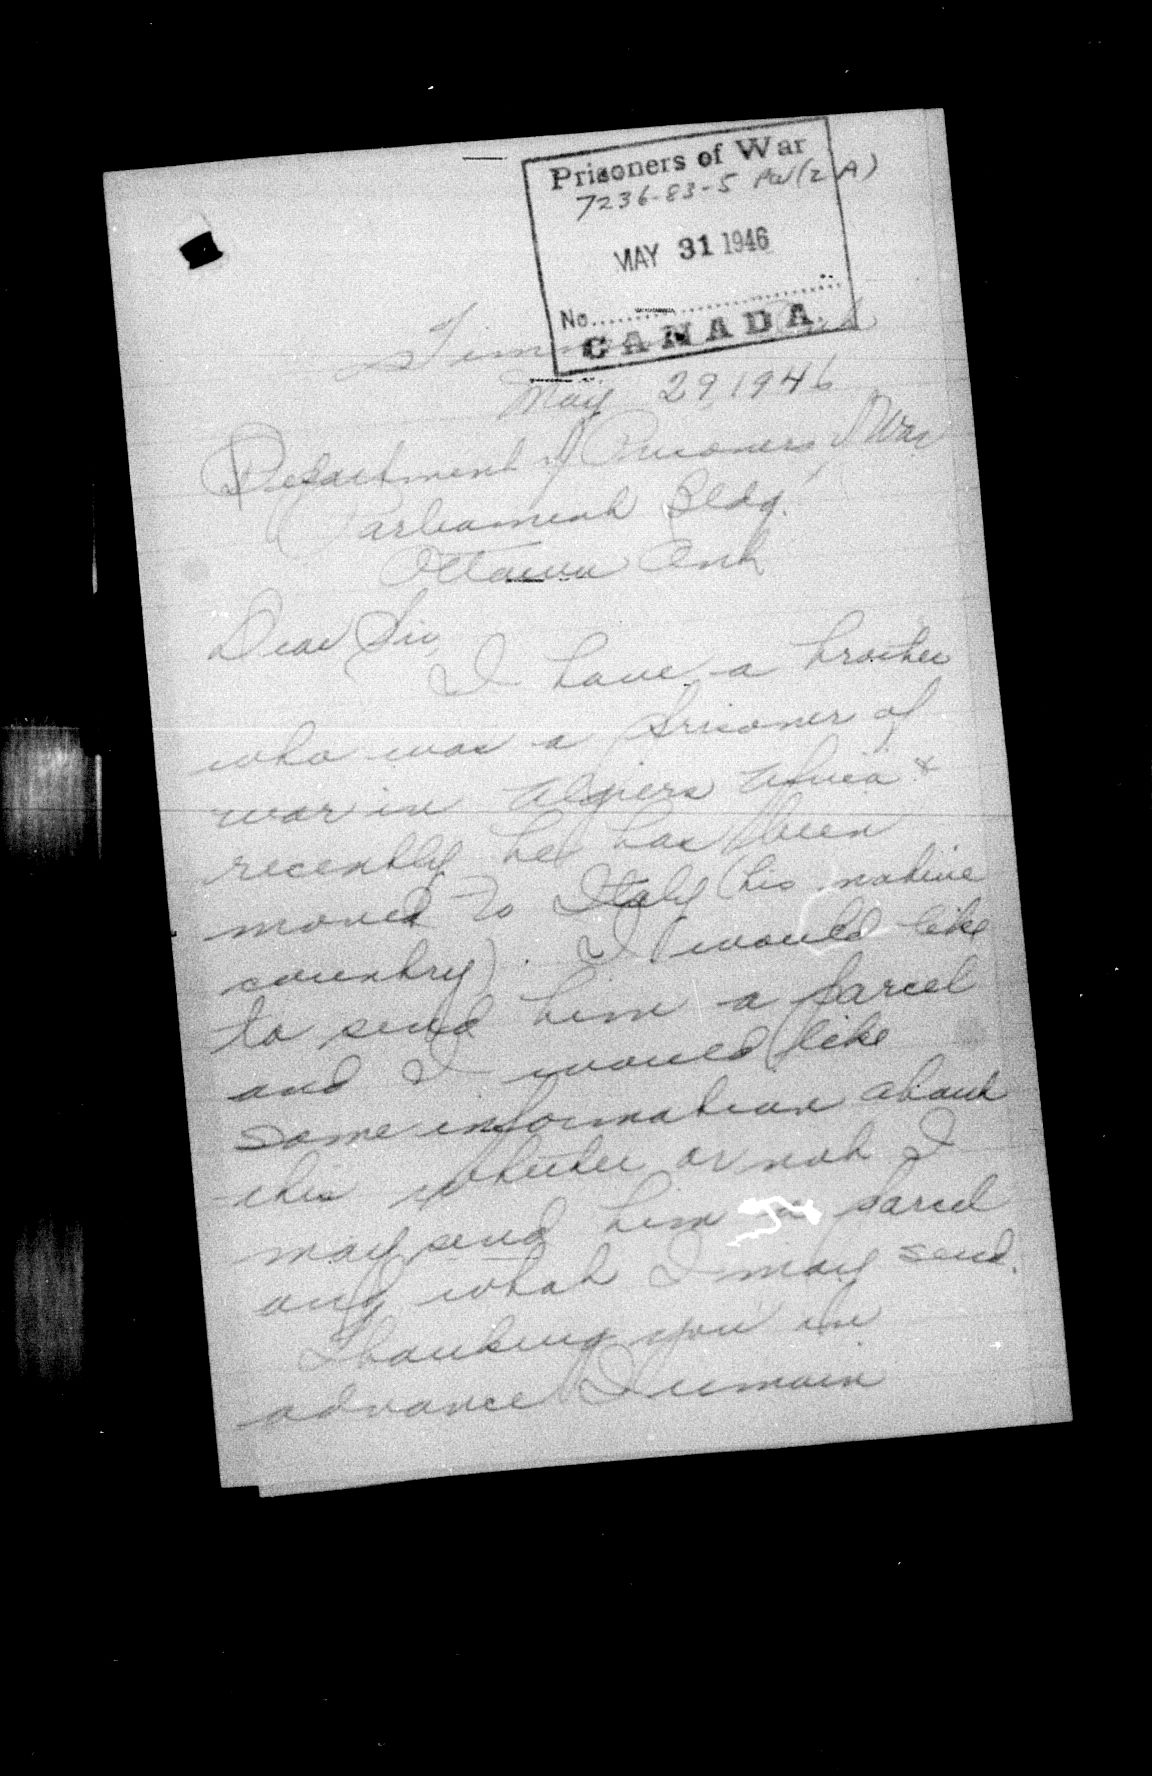 Prisoners of War
7236-83-5 PW(2A)
MAY 31 1946
No.
CANADA
May 29, 1946
Department of Prisoners of War
Parliament Bldg.
Ottawa Ont
Dear Sir,
I have a brother
who was a prisoner of
war in Algiers Africa &
recently he has been
moved to Italy (his native
country). I would like
to send him a parcel
and I would like
some information about
this whether or not I
may send him a parcel
and what I may send.
Thanking you in
advance I remain